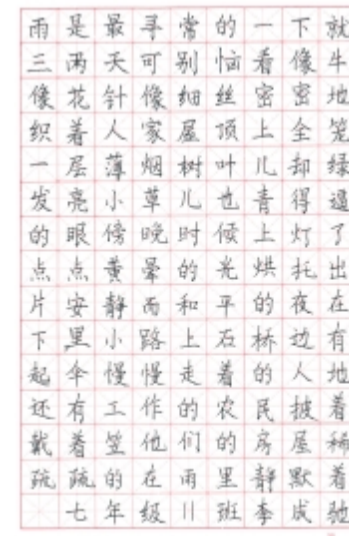 雨是最寻常的一下就
三两天可别恼看像牛
像花针像细丝密密地
织着人家屋顶上全笼
一层薄烟树叶儿却绿
发亮小草儿也青得逼
的眼傍晚时候上灯了
点点黄晕的光烘托出
片安静而和平的夜在
下里小路上石桥边有
起伞慢慢走着的人地
还有工作的农民披着
戴着笠他们的房屋稀
疏疏的在雨里静默着
七年级11班李成驰